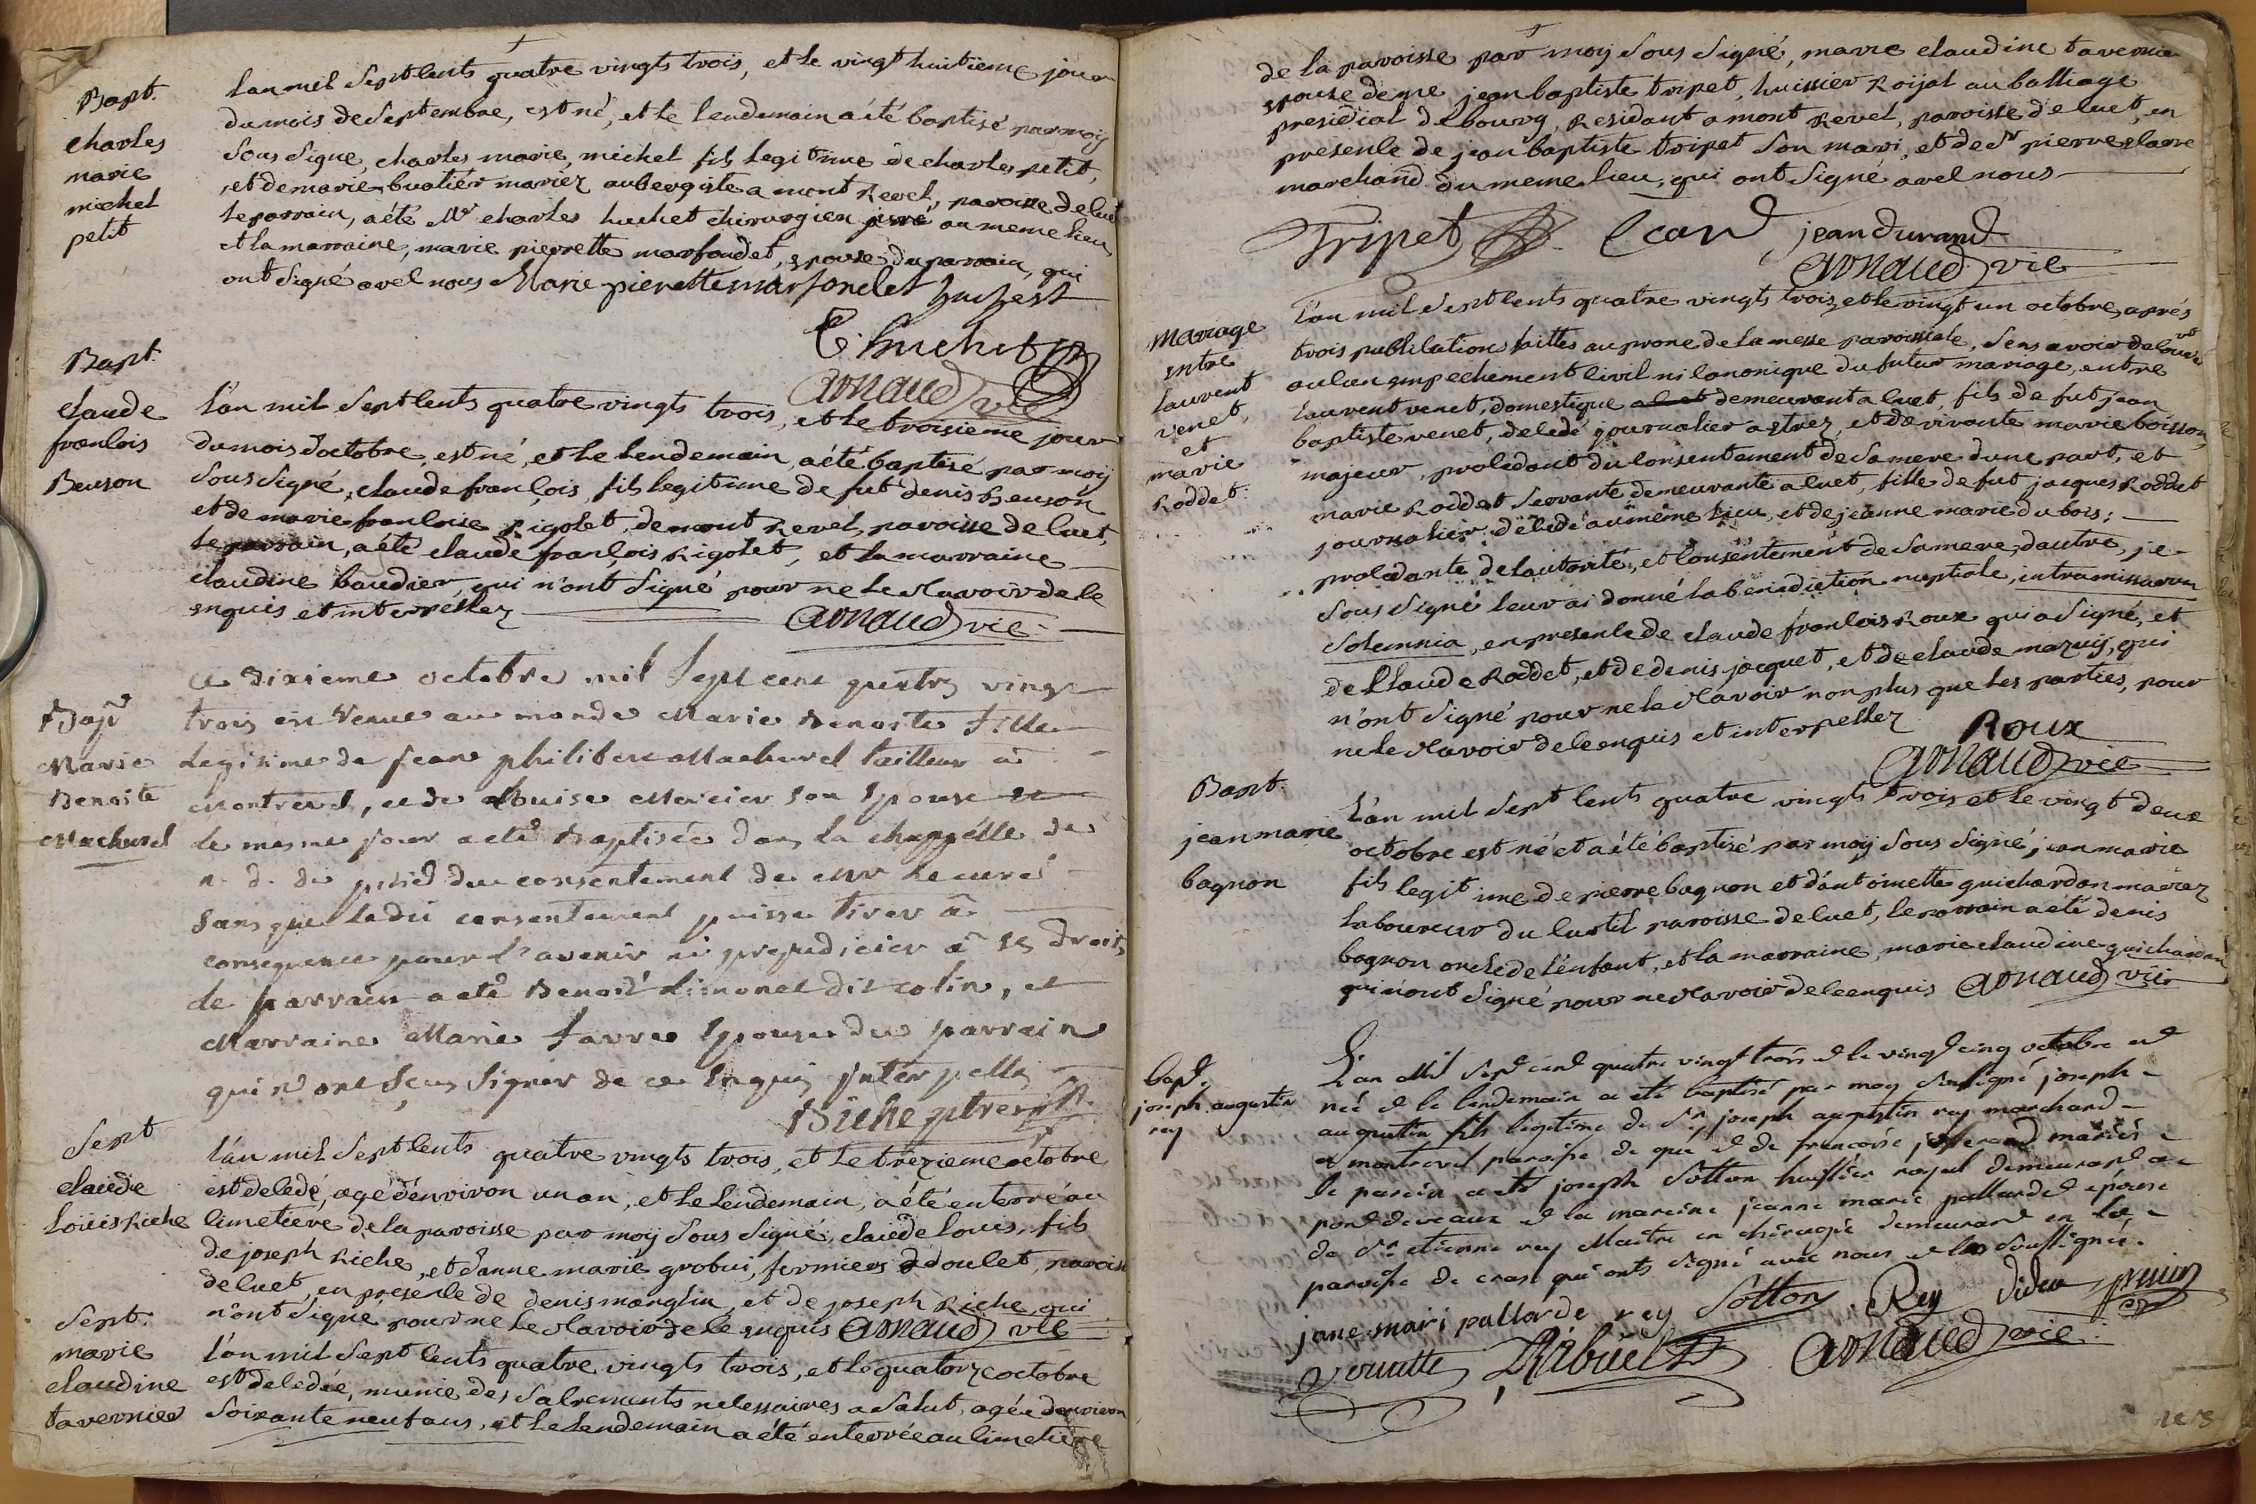 Bapt.
charles
marie
michel
petit
L'an mil Sept Cents quatre vingts trois, et le vingt huitieme jour
du mois de Septembre, est né, et le lendemain a été baptisé par moy
Sous Signé, charles marie, michel fils legitime de charles petit,
et de marie buatier mariez aubergiste a mont Revel, paroisse de Cuet
le parrain, a été Mr charles huchet chirurgien juré au meme lieu
et la marraine, marie pierrette marfondet, epouse du parrain, qui
ont Signé avec nous Marie pierette marfondet huchest
C. huchet
arnaud vic
Bapt.
claude
francois
Beuson
L'an mil Sept Cents quatre vingts trois, et le troisieme jour
du mois d'octobre, est né, et le lendemain, a été baptisé par moy
Sous Signé, claude françois, fils legitime de fut denis Beuson
et de marie francoise Rigolet, de mont Revel, paroisse de Cuet,
le parrain, a été claude françois Rigolet, et la marraine
claudine baudier, qui n'ont Signé pour ne le Scavoir de ce
enquis et interpellez
arnaud vic
Bapt
Marie
Benoite
Machurel
Ce Dixieme octobre mil Sept cent quatre vingt
trois est Venue au monde Marie Benoite fille
Legitime de Jean philibert Machurel tailleur à
Montrevel, et de Louise Mercier son Epouse et
le mesme jour a eté Baptisée dans la chappelle de
n. d. de pitié du consentement de Mr Le curé
sans que le dit consentement puisse tirer à
consequence pour l'avenir ni prejudicier à ses droits
le parrain a eté Benoit Limonet dit colin, et
Marraine Marie favre Epouse du parrain
qui n'ont sçeu Signer de ce Enquis Interpellés
Biche ptre
Sept
claude
Loüis Riche
L'an mil Sept Cents quatre vingts trois, et le trezieme octobre
est decedé, agé d'environ un an, et le lendemain, a été enterré au
Cimetiere de la paroisse par moy Sous Signé, claude Louis, fils
de joseph Riche, et d'anne marie grobui, fermiers d doulet, paroisse
de Cuet, en presence de denis manglin, et de joseph Riche qui
n'ont Signé pour ne le Scavoir de ce enquis arnaud vic
Sept.
marie
claudine
tavernier
L'an mil Sept Cents quatre vingts trois, et le quatorze octobre
est decedée, munie des Sacrements necessaires a Salut, agée d'environ
Soixante neuf ans, et le Lendemain a été enterrée au Cimetiere
de la paroisse par moy Sous Signé, marie claudine tavernier
epouse de me jean baptiste tripet, huissier Roijal au balliage
presidial de bourg, Residant a mont Revel, paroisse de Cuet, en
presence de jean baptiste tripet Son mari, et de Sr pierre
marchand du meme lieu, qui ont Signé avec nous
Tripet jean durand
arnaud vic
Mariage
entre
Laurent
venet,
et
marie
Roddet.
L'an mil Sept Cents quatre vingts trois, et le vingt un octobre, aprés
trois publications faittes au prone de la messe paroissiale, Sens avoir decouvert
aucun empechement Civil ni Canonique du futur mariage, entre
Laurent venet, domestique demeurant a Cuet, fils de fut jean
baptiste venet, decedé journalier a etrez, et de vivante marie boisson,
majeur, procedant du Consentement de Sa mere dune part, et
marie Roddet Servante demeurante a Cuet, fille de fut jacques Roddet
journalier decedé au même Lieu, et de jeanne marie du bois;
procedante de l'autorité, et Consentement de Sa mere, d'autre, je
Sous Signé leur ai donné la benediction nuptiale, intra missarum
Solemnia, en presence de claude francois Roux qui a Signé, et
de Claude Roddet, et de denis jacquet, et de claude mazuy, qui
n'ont Signé pour ne le Scavoir non plus que les parties, pour
ne le Scavoir de ce enquis et interpellez
Roux
arnaud vic
Bapt.
jean marie
bagnon
L'an mil Sept Cents quatre vingts trois et le vingt deux
octobre est né et a été baptisé par moy Sous Signé, jean marie
fils legitime de pierre bagnon et d'antoinette guichardan mariez
laboureur du Curtil paroisse de Cuet, le parrain a eté denis
bagnon oncle de l'enfant, et la marraine, marie claudine guichardan
qui n'ont Signé pour ne Scavoir de ce enquis arnaud vic
bapt.
joseph augustin
rey
L'an Mil Sept cent quatre vingt trois et le vingt cinq octobre est
née et le lendemain a eté baptisé par moy Soussigné joseph
augustin fils legitime de Sr joseph augustin rey marchand
a montrevel paroisse de qué et de francoise mariés
le parein a eté joseph Sotton huissier royal demeurant a
pont deveaux et la mareine jeanne marie pallarde epouse
de Sr etienne rey Maitre en chirurgie demeurant en la
paroisse de cras qui onts Signé avec nous et les Soussignés.
jane mari pallarde rey Sotton Rey
arnaud vic